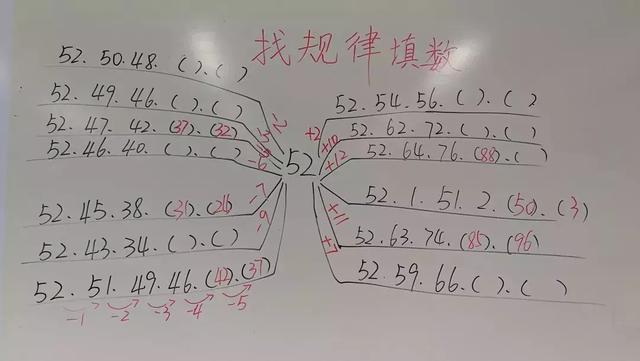 找规律填数
52. 50. 48. ( ). ( )
-2
52. 49. 46. ( ). ( )
-3
52. 47. 42. (37). (32)
52. 46. 40. ( ). ( )
-6
52. 45. 38. (31). (24)
-7
52. 43. 34. ( ). ( )
-9
52. 51. 49. 46. (42). (37)
-1 -2 -3 -4 -5
52
52. 54. 56. ( ). ( )
+2
52. 62. 72. ( ). ( )
+10
52. 64. 76. (88). ( )
+12
52. 1. 51. 2. (50). (3)
52. 63. 74. (85). (96)
+11
52. 59. 66. ( ). ( )
+7